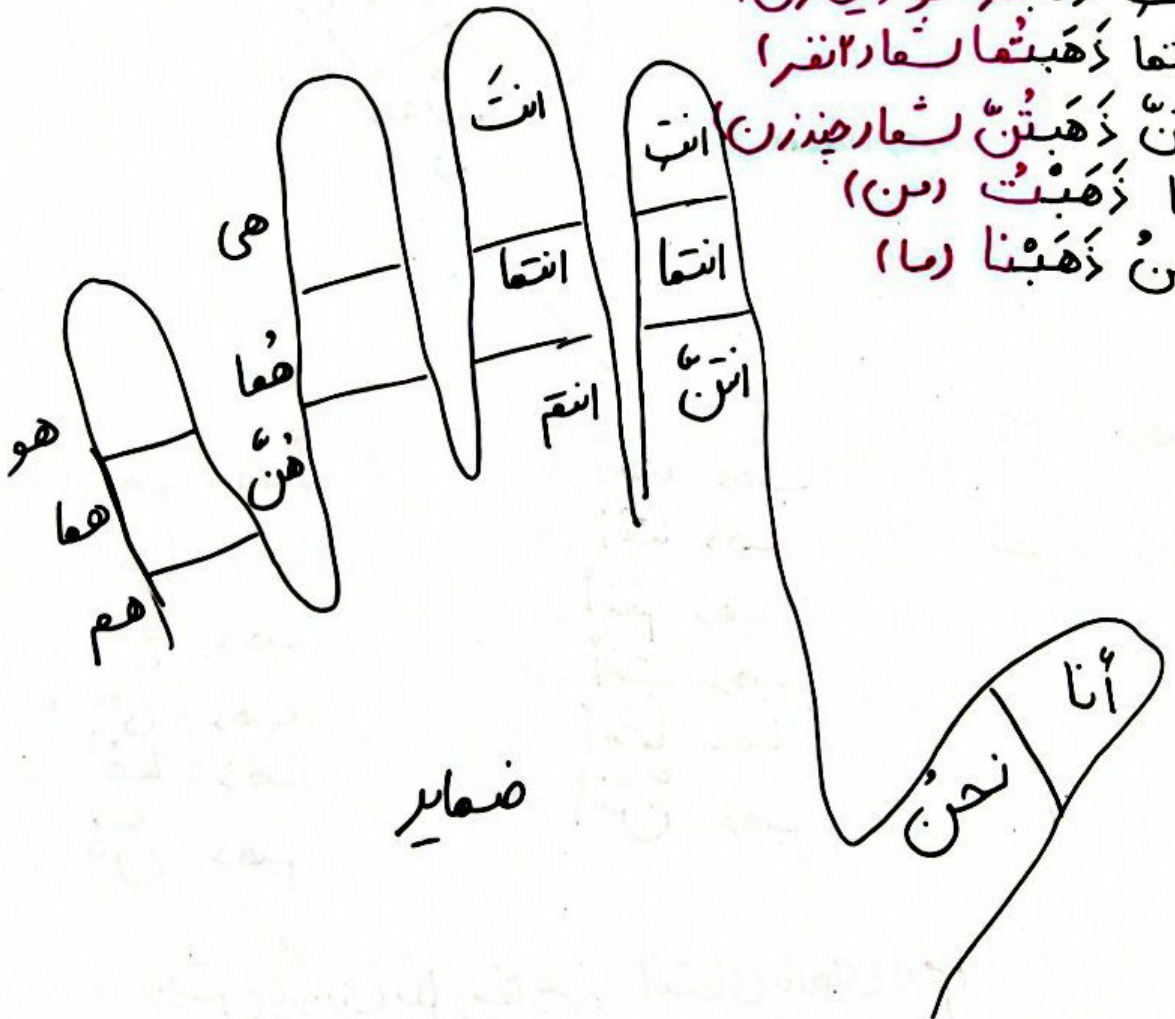 ذَهَبتُما شما (۲نفر)
ذَهَبتُنّ شما (چند زن)
ذَهَبْتُ (من)
ذَهَبْنا (ما)
هو
هما
هم
هی
هُما
هُنّ
انتَ
انتما
انتم
انتِ
انتما
انتنّ
أنا
نحنُ
ضمایر